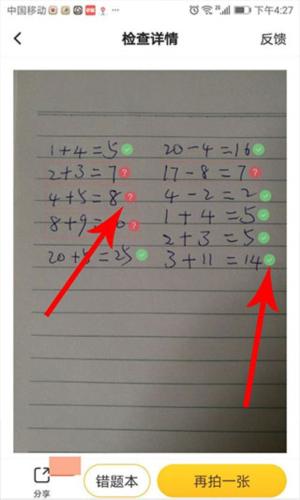 中国移动 下午4:27
检查详情 反馈
1+4=5 20-4=16
2+3=7 ? 17-8=7 ?
4+5=8 ? 4-2=2
8+9= 0 ? 1+4=5
2+3=5
20+5=25 3+11=14
分享 错题本 再拍一张